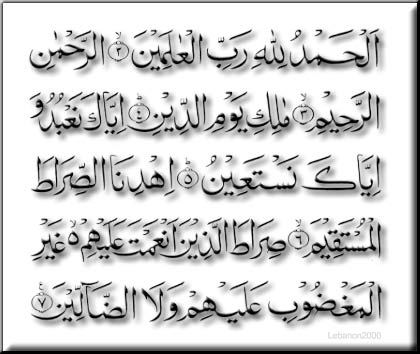 اَلْحَمْدُ لِلّٰهِ رَبِّ الْعٰلَمِيْنَ ۙ﴿۲﴾ الرَّحْمٰنِ
الرَّحِيْمِ ۙ﴿۳﴾ مٰلِكِ يَوْمِ الدِّيْنِ ؕ﴿۴﴾ اِيَّاكَ نَعْبُدُ وَ
اِيَّاكَ نَسْتَعِيْنُ ؕ﴿۵﴾ اِهْدِنَا الصِّرَاطَ
الْمُسْتَقِيْمَ ۙ﴿۶﴾ صِرَاطَ الَّذِيْنَ اَنْعَمْتَ عَلَيْهِمْ ۙ۬ۥ غَيْرِ
الْمَغْضُوْبِ عَلَيْهِمْ وَلَا الضَّآلِّيْنَ ﴿۷﴾
Lebanon2000